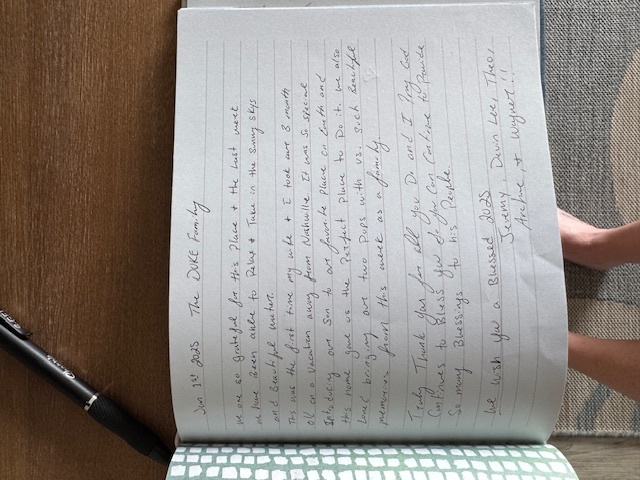 Jan 1st 2025 The DUKE Family
We are so grateful for this Place + the last week
we have been able to Relax + Take in the Sunny skys
and Beautiful water.
This was the first time my wife + I took our 8 month
old on a vacation away from Nashville. It was so special
Introducing our son to our favorite place on Earth and
this home gave us the Perfect Place to Do it. We also
Loved bringing our two Pups with us. Such Beautiful
memories from this week as a family.
Truly Thank you for all you Do and I Pray God
Continues to Bless you so you can Continue to Provide
So many Blessings to his People.
We wish you a Blessed 2025
Jeremy, Devin Lee, Theo,
Archie, + Wayner!!